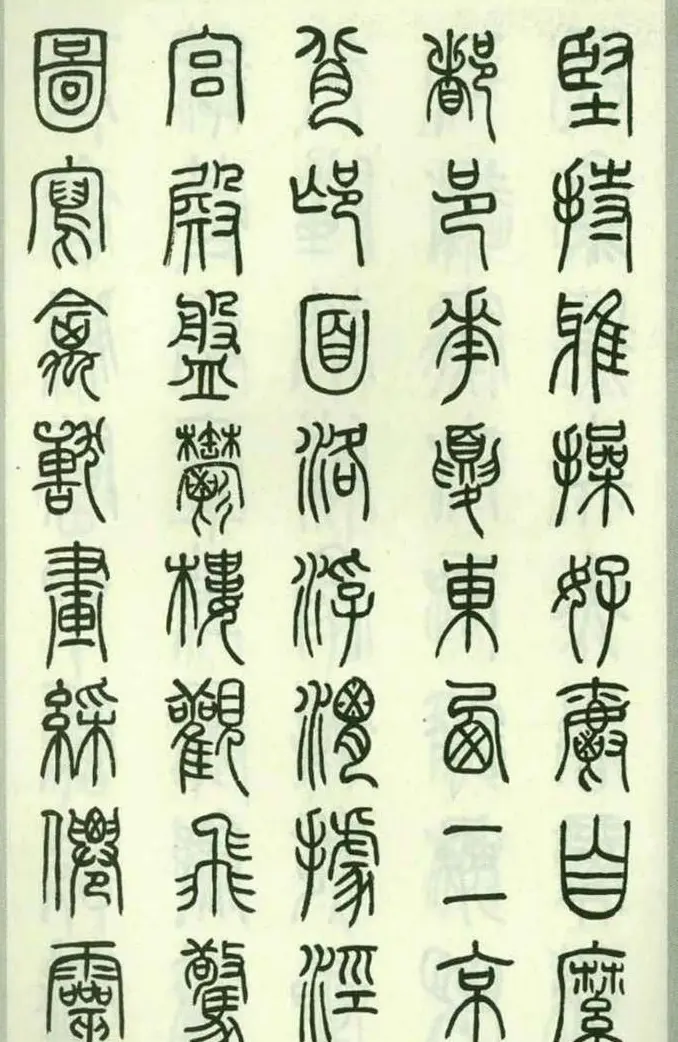 堅持雅操好爵自縻
都邑華夏東西二京
背邙面洛浮渭據涇
宮殿盤鬱樓觀飛驚
圖寫禽獸畫綵僊靈